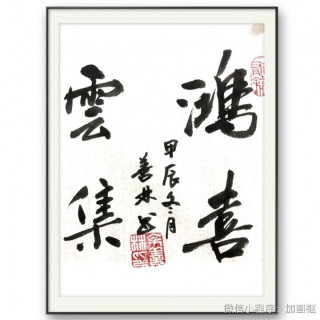 鴻喜
雲集
甲辰冬月
善林书
微信小程序：加画框